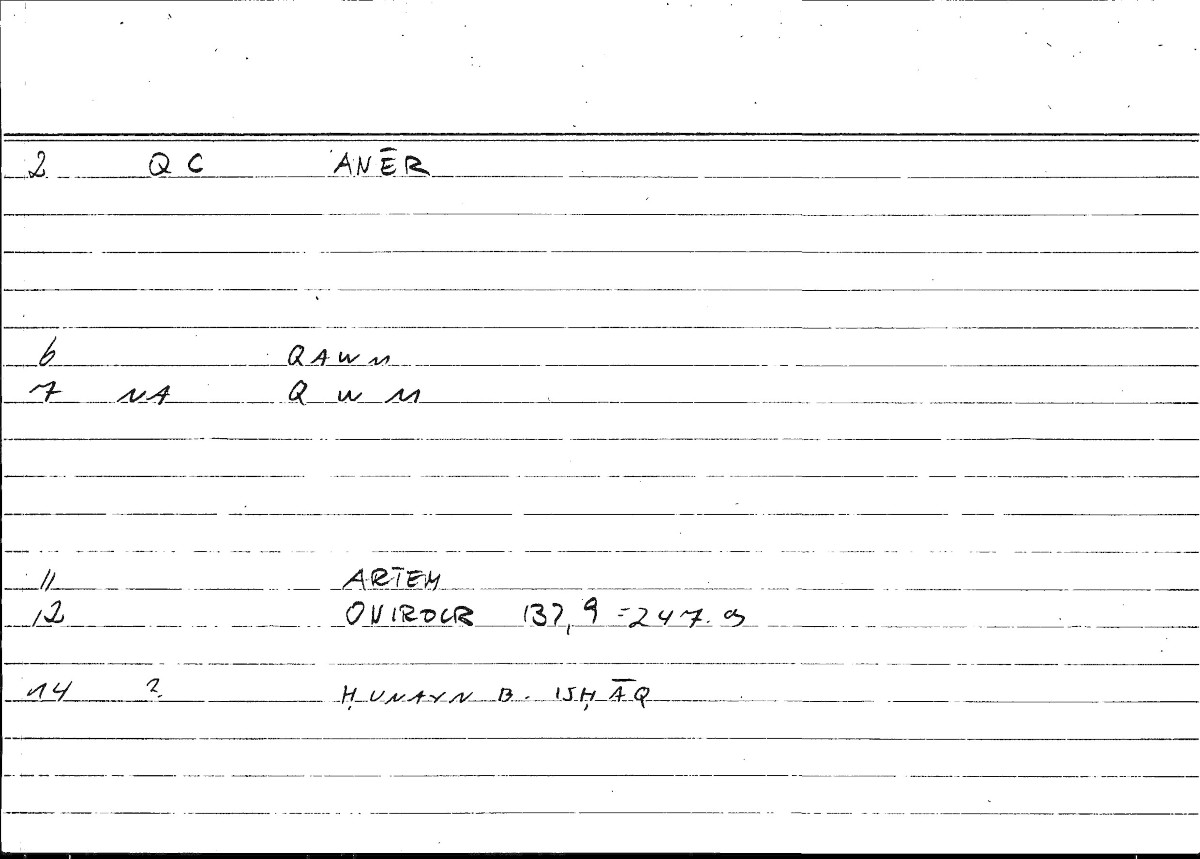 2 QC ANĒR
6 QAWM
7 NA QWM
11 ARTEM
12 ONIROCR 137,9 = 247.9
14 ? ḤUNAYN B. ISḤĀQ